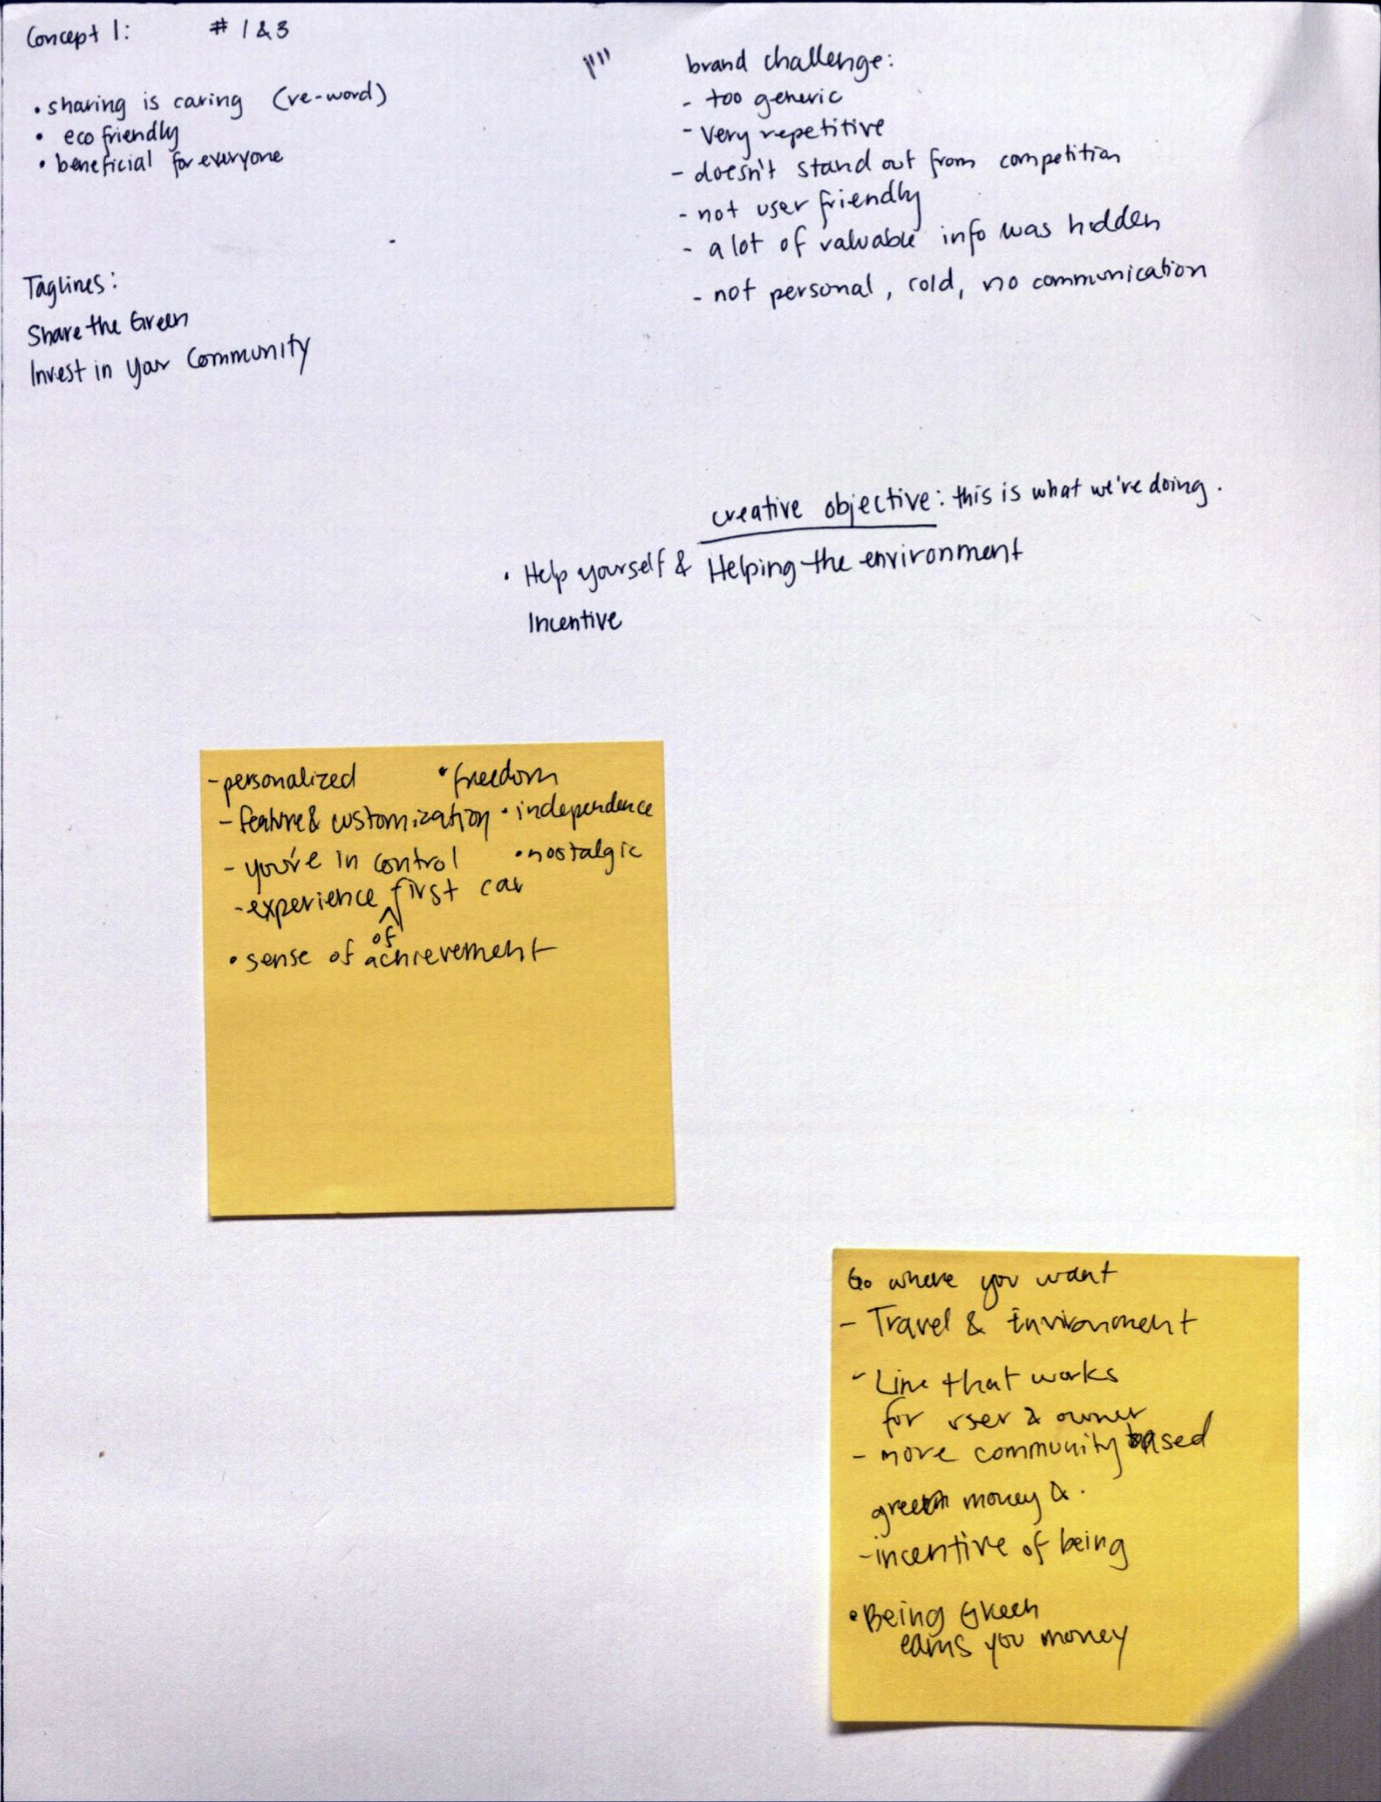 Concept 1: # 1 & 3
• sharing is caring (re-word)
• eco friendly
• beneficial for everyone
Taglines:
Share the Green
Invest in your Community
brand challenge:
- too generic
- very repetitive
- doesn't stand out from competition
- not user friendly
- a lot of valuable info was hidden
- not personal, cold, no communication
creative objective: this is what we're doing.
• Help yourself & Helping the environment
Incentive
- personalized • freedom
- feature & customization • independence
- you're in control • nostalgic
- experience of first car
• sense of achievement
Go where you want
- Travel & Environment
- Line that works
for user & owner
- more community based
green money &.
- incentive of being
• Being Green
earns you money